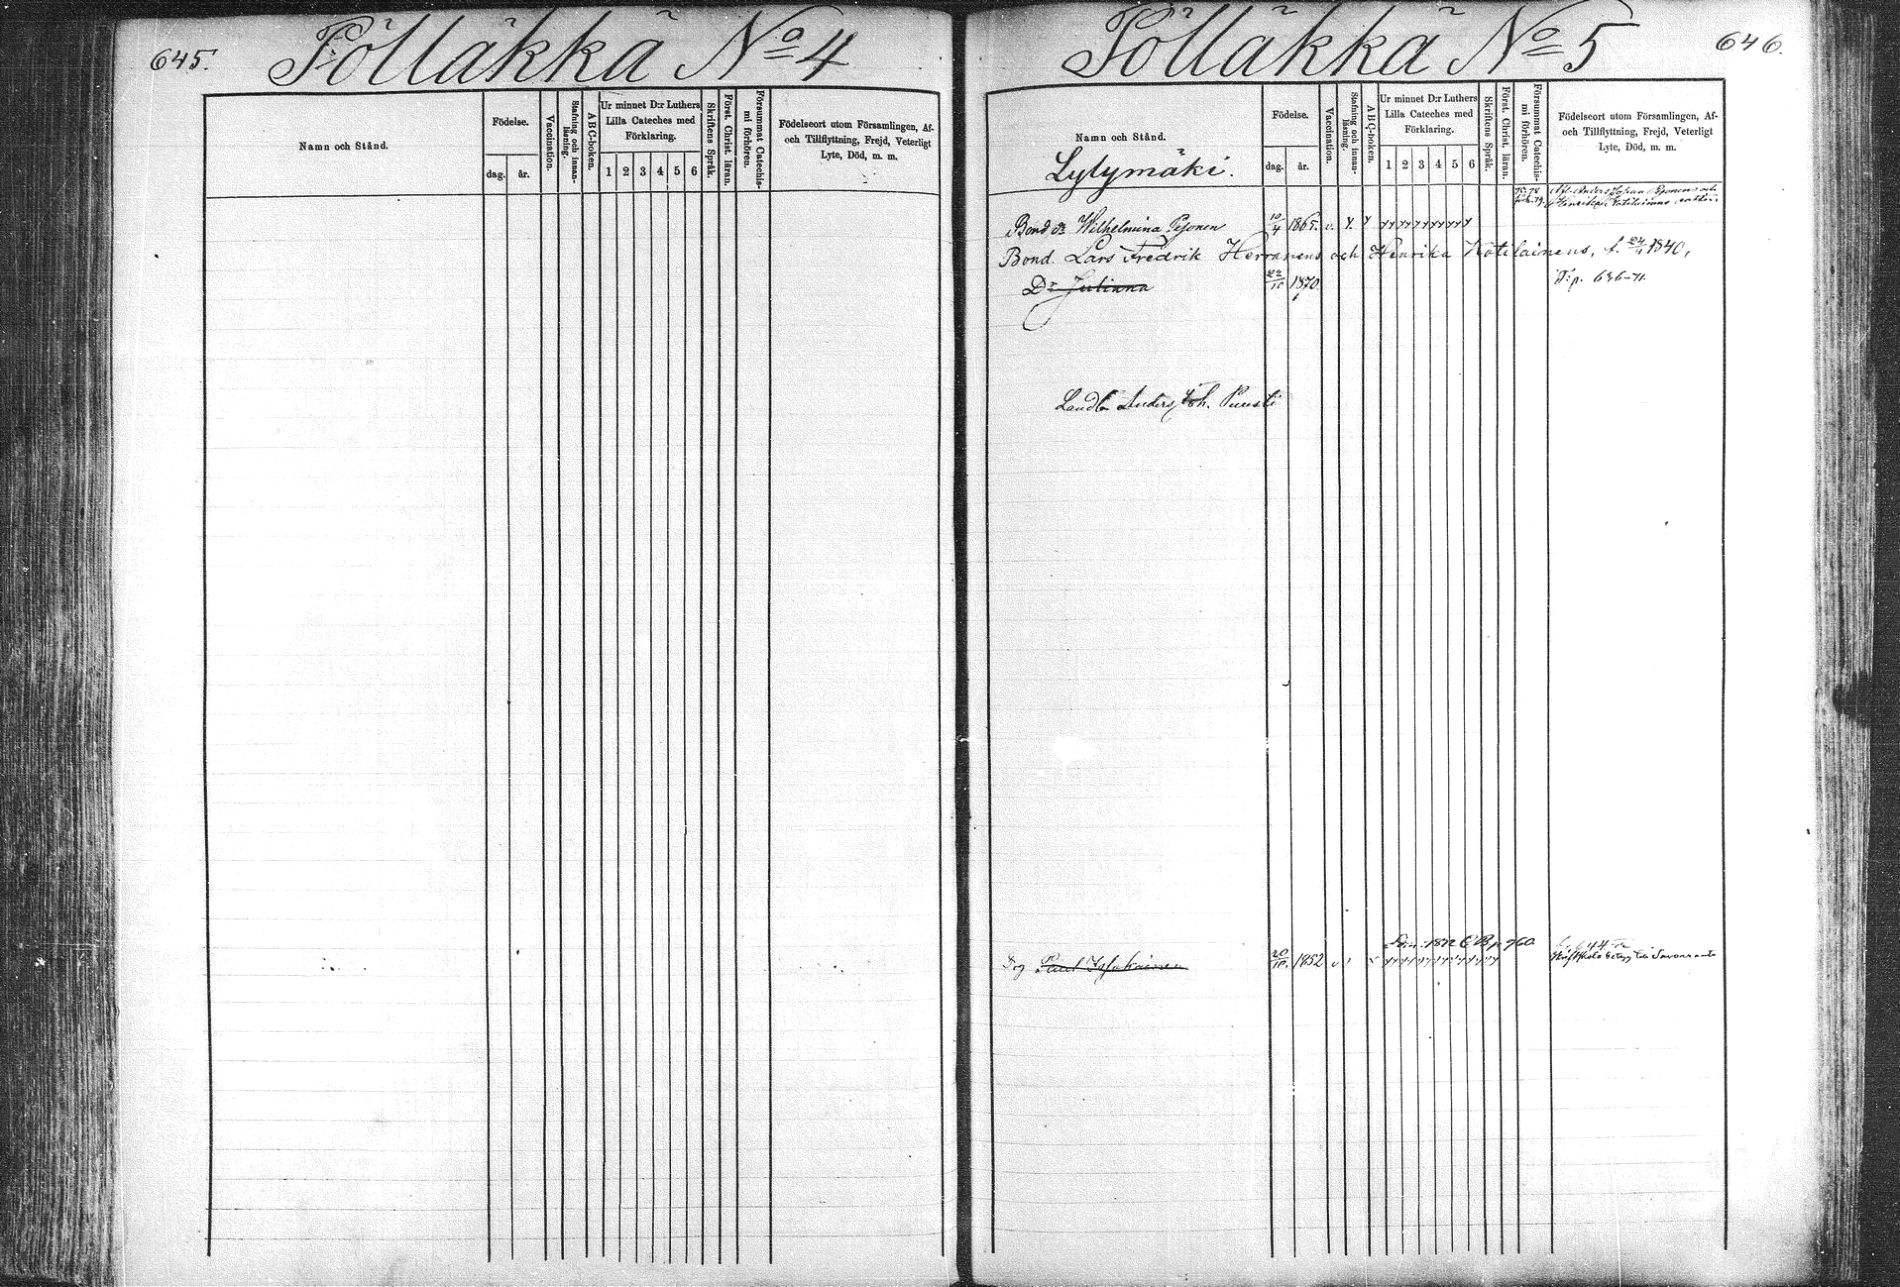 645.
Pöllakka No 4
Namn och Stånd.
Födelse.
dag.
år.
Vaccination.
Stafning och innan-
läsning.
ABC-boken.
Ur minnet D:r Luthers
Lilla Cateches med
Förklaring.
1 2 3 4 5 6
Skriftens Språk.
Först. Christ. läran.
Försummat Catechis-
mi förhören.
Födelseort utom Församlingen, Af-
och Tillflyttning, Frejd, Veterligt
Lyte, Död, m. m.
646.
Pöllakka No 5
Namn och Stånd.
Lylymäki.
Födelse.
dag.
år.
Vaccination.
Stafning och innan-
läsning.
ABC-boken.
Ur minnet D:r Luthers
Lilla Cateches med
Förklaring.
1 2 3 4 5 6
Skriftens Språk.
Först. Christ. läran.
Försummat Catechis-
mi förhören.
Födelseort utom Församlingen, Af-
och Tillflyttning, Frejd, Veterligt
Lyte, Död, m. m.
Anders Johan och
Henrika
Bond dr Wilhelmina 10/4 1865. v.
Bond. Lars Fredrik och Henrika Kotilainens, f. 24/4 1840,
Dr Juliana 22/10 1870. p. 636-71.
Anders Joh. Puusti
1872 p 760
Paul 20/10. 1852